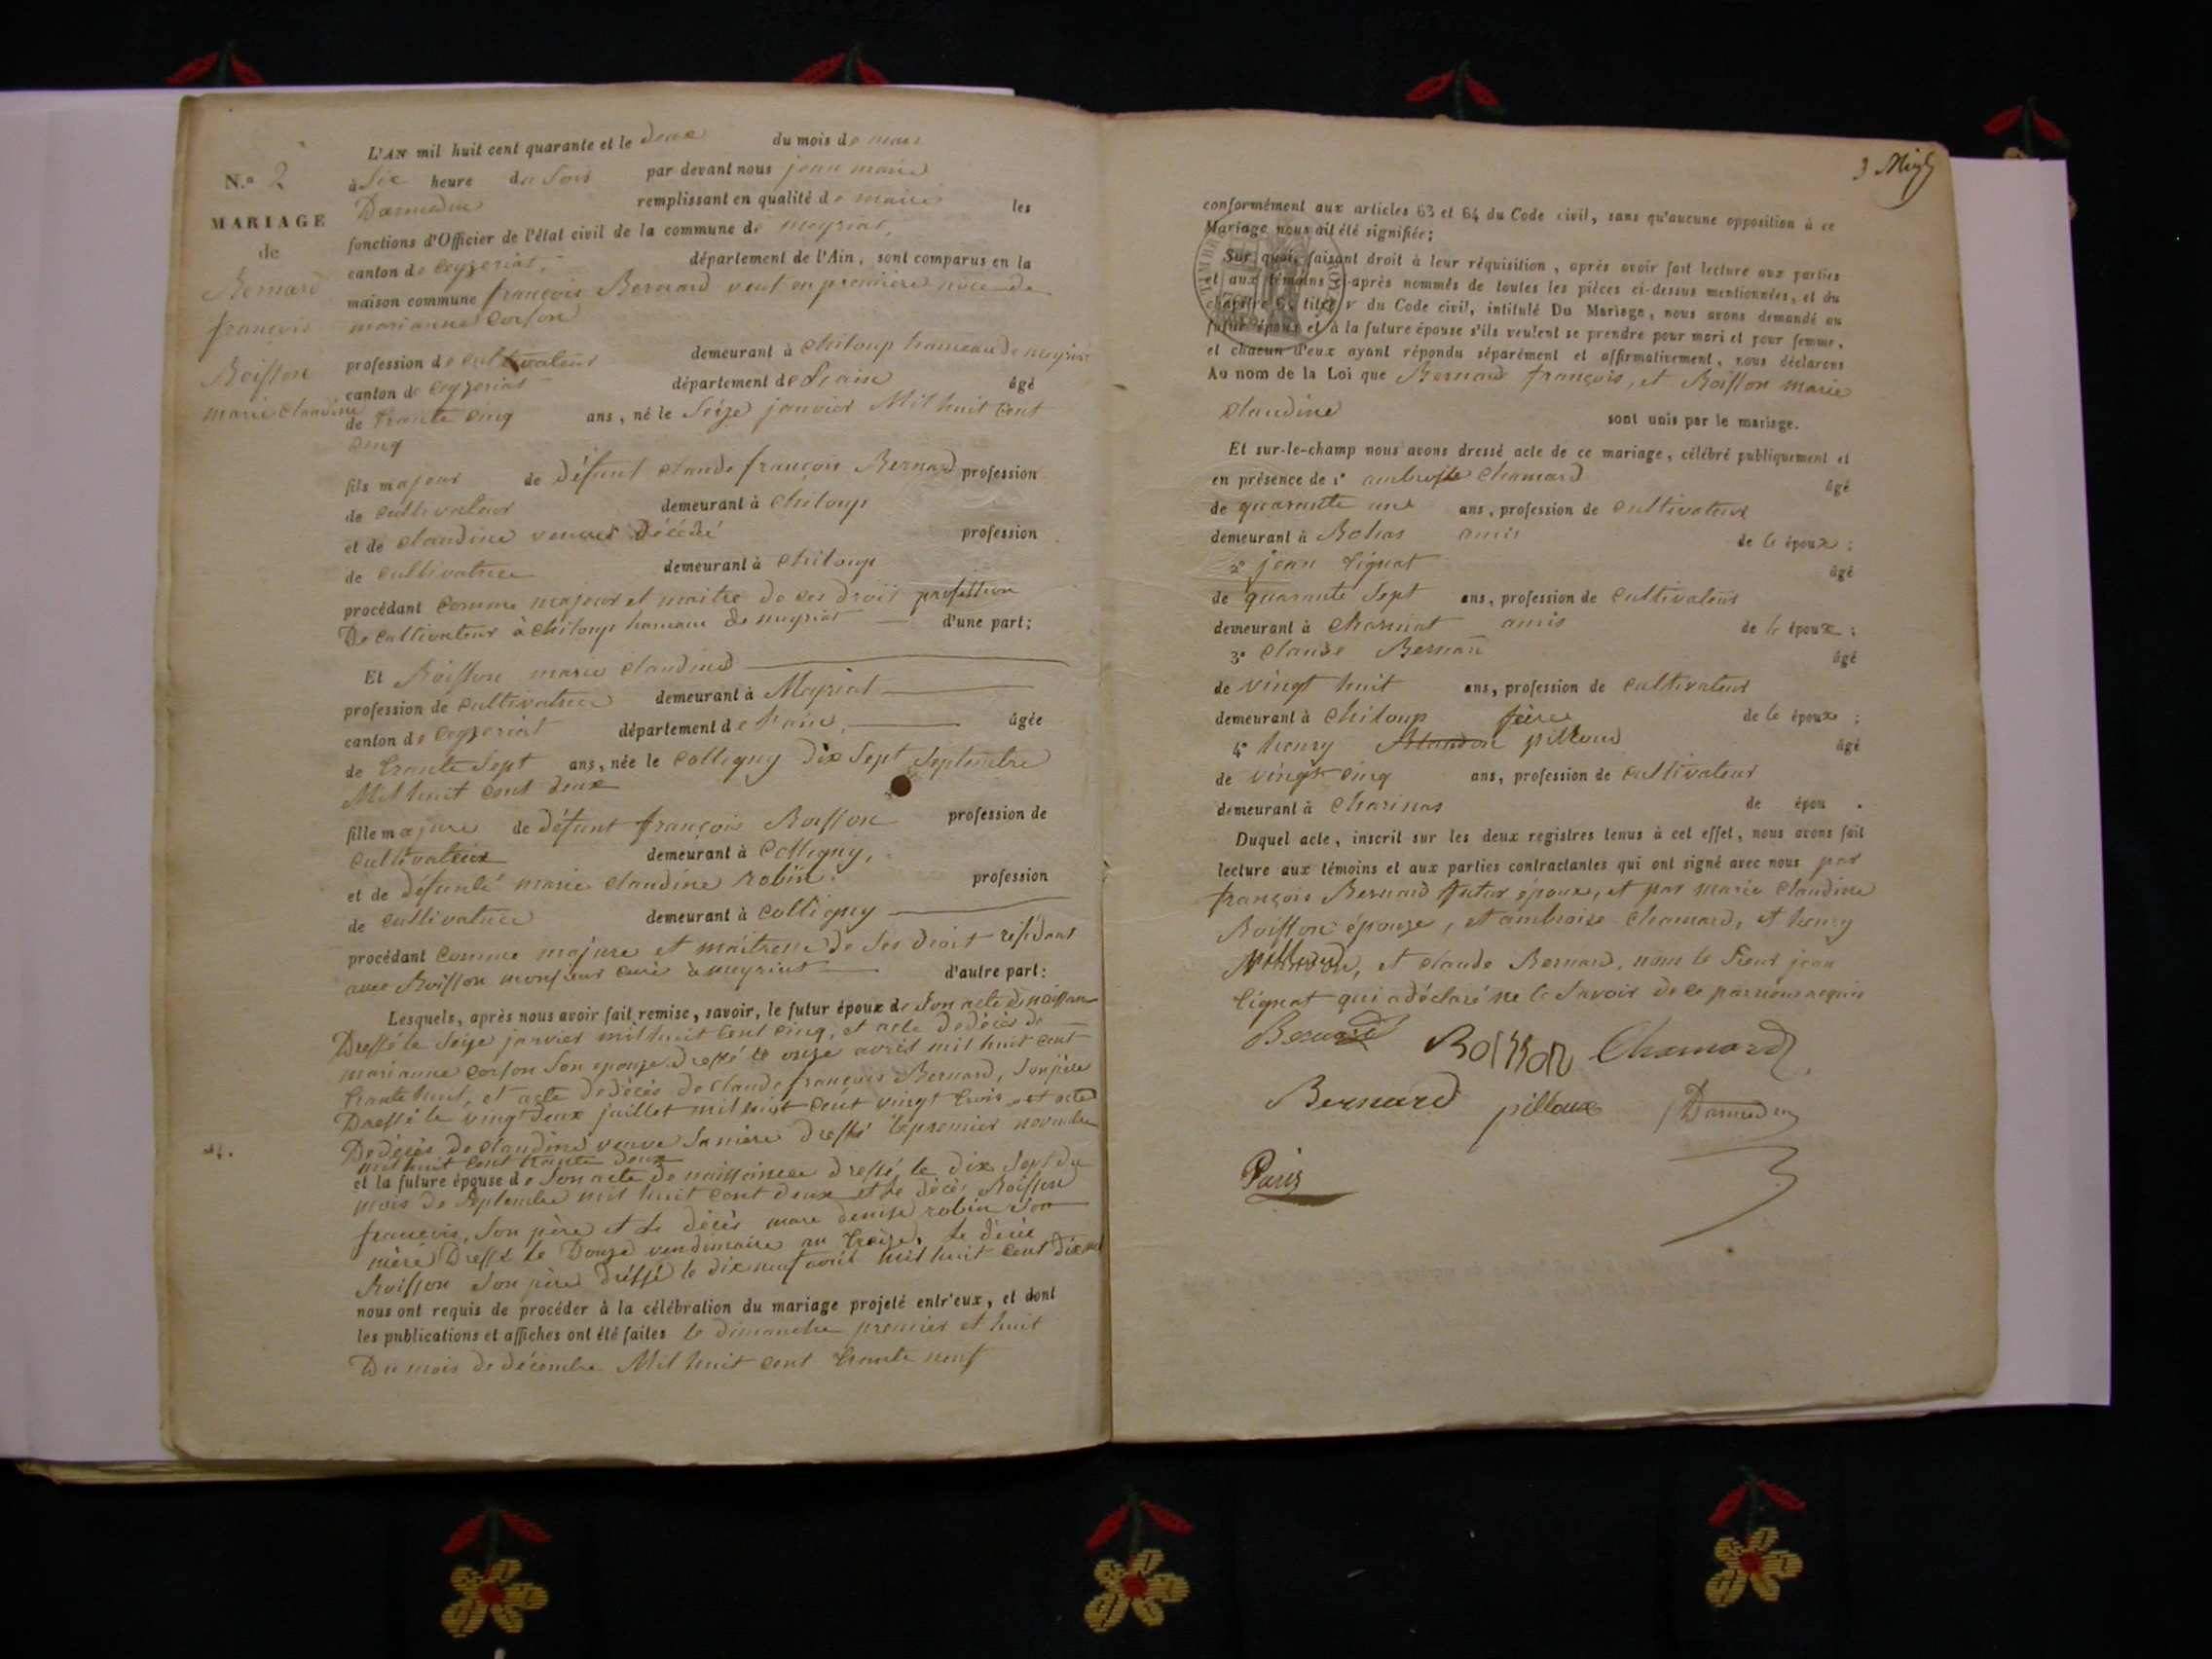 N.° 2
MARIAGE
de
Bernard
françois
Boisson
marie claudine
L'AN mil huit cent quarante et le deux du mois de mars
à Six heure du soir par devant nous jean marie
remplissant en qualité de maire les
fonctions d'Officier de l'état civil de la commune de meyriat,
canton de Ceyzeriat, département de l'Ain, sont comparus en la
maison commune françois Bernard veuf en première noce de
marianne
profession de cultivateur demeurant à Chiloup hameau de meyriat
canton de Ceyzeriat département de L'ain âgé
de trante cinq ans, né le Seize janvier Mil huit cent
cinq
fils majeur de défunt claude françois Bernard profession
de cultivateur demeurant à Chiloup
et de claudine venue décédé profession
de cultivatrice demeurant à Chiloup
procédant comme majeur et maitre de ses droit profession
De cultivateur à chiloup hameau de meyriat d'une part;
Et Boisson marie claudine
profession de cultivatrice demeurant à Meyriat
canton de Ceyzeriat département de L'ain, âgée
de trante Sept ans, née le Colligny dix Sept Septembre
Mil huit cent deux
fille majure de défunt françois Boisson profession de
cultivateur demeurant à Colligny,
et de défunte marie claudine robin. profession
de cultivatrice demeurant à Colligny
procédant comme majure et maitresse de Ses droit résidant
avec Boisson monsieur curé à meyriat d'autre part:
Lesquels, après nous avoir fait remise, savoir, le futur époux de Son acte de naissance
Dressé le Seize janvier mil huit cent cinq, et acte de décès de
marianne Son epouze dressé le onze avril mil huit cent
trante et acte de décès de claude françois Bernard, Son père
Dressé le vingt deux juillet mil huit cent vingt trois et acte
De décès de claudine venue Sa mère dressé le premier novembre
mil huit cent trante deux
et la future épouse de Son acte de naissance dressé le dix Sept du
mois de Septembre mil huit cent deux et le décès Boisson
françois, Son père et le décès denise robin Son
mère Dressé le Douze vendimaire an treize. le décès
Boisson Son père dressé le dix neuf avril mil huit cent
nous ont requis de procéder à la célébration du mariage projeté entr'eux, et dont
les publications et affiches ont été faites le dimanche premier et huit
Du mois de décembre Mil huit cent trante neuf
3
conformément aux articles 63 et 64 du Code civil, sans qu'aucune opposition à ce
Mariage nous ait été signifiée;
Sur quoi, faisant droit à leur réquisition, après avoir fait lecture aux parties
et aux témoins ci-après nommés de toutes les pièces ci-dessus mentionnées, et du
chapitre 6, titre v du Code civil, intitulé Du Mariage, nous avons demandé au
futur époux et à la future épouse s'ils veulent se prendre pour mari et pour femme,
et chacun d'eux ayant répondu séparément et affirmativement, nous déclarons
Au nom de la Loi que Bernard françois, et Boisson marie
claudine sont unis par le mariage.
Et sur-le-champ nous avons dressé acte de ce mariage, célébré publiquement et
en présence de 1° Chamard âgé
de quarante une ans, profession de cultivateur
demeurant à Bohas amis de le époux;
2° jean tignat âgé
de quarante Sept ans, profession de cultivateur
demeurant à amis de le époux;
3° claude Bernard âgé
de vingt huit ans, profession de cultivateur
demeurant à chiloup frère de le époux;
4° henry pilloux âgé
de vingt cinq ans, profession de cultivateur
demeurant à Charinas de épou .
Duquel acte, inscrit sur les deux registres tenus à cet effet, nous avons fait
lecture aux témoins et aux parties contractantes qui ont signé avec nous par
françois Bernard futur époux, et par marie claudine
Boisson épouze, et ambroise Chamard, et henry
et claude Bernard, non le Sieur jean
tignat qui a déclaré ne le Savoir de ce requis
Bernard Boisson Chamard
Bernard pilloux
Paris